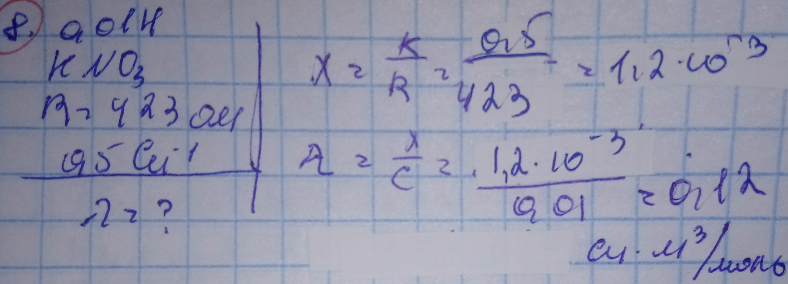 8. 0,01Н
KNO₃
R = 423 Ом
0,5 См⁻¹
λ = ?
X = K/R = 0,5/423 = 1,2·10⁻³
λ = X/C = 1,2·10⁻³/0,01 = 0,12
См·м³/моль